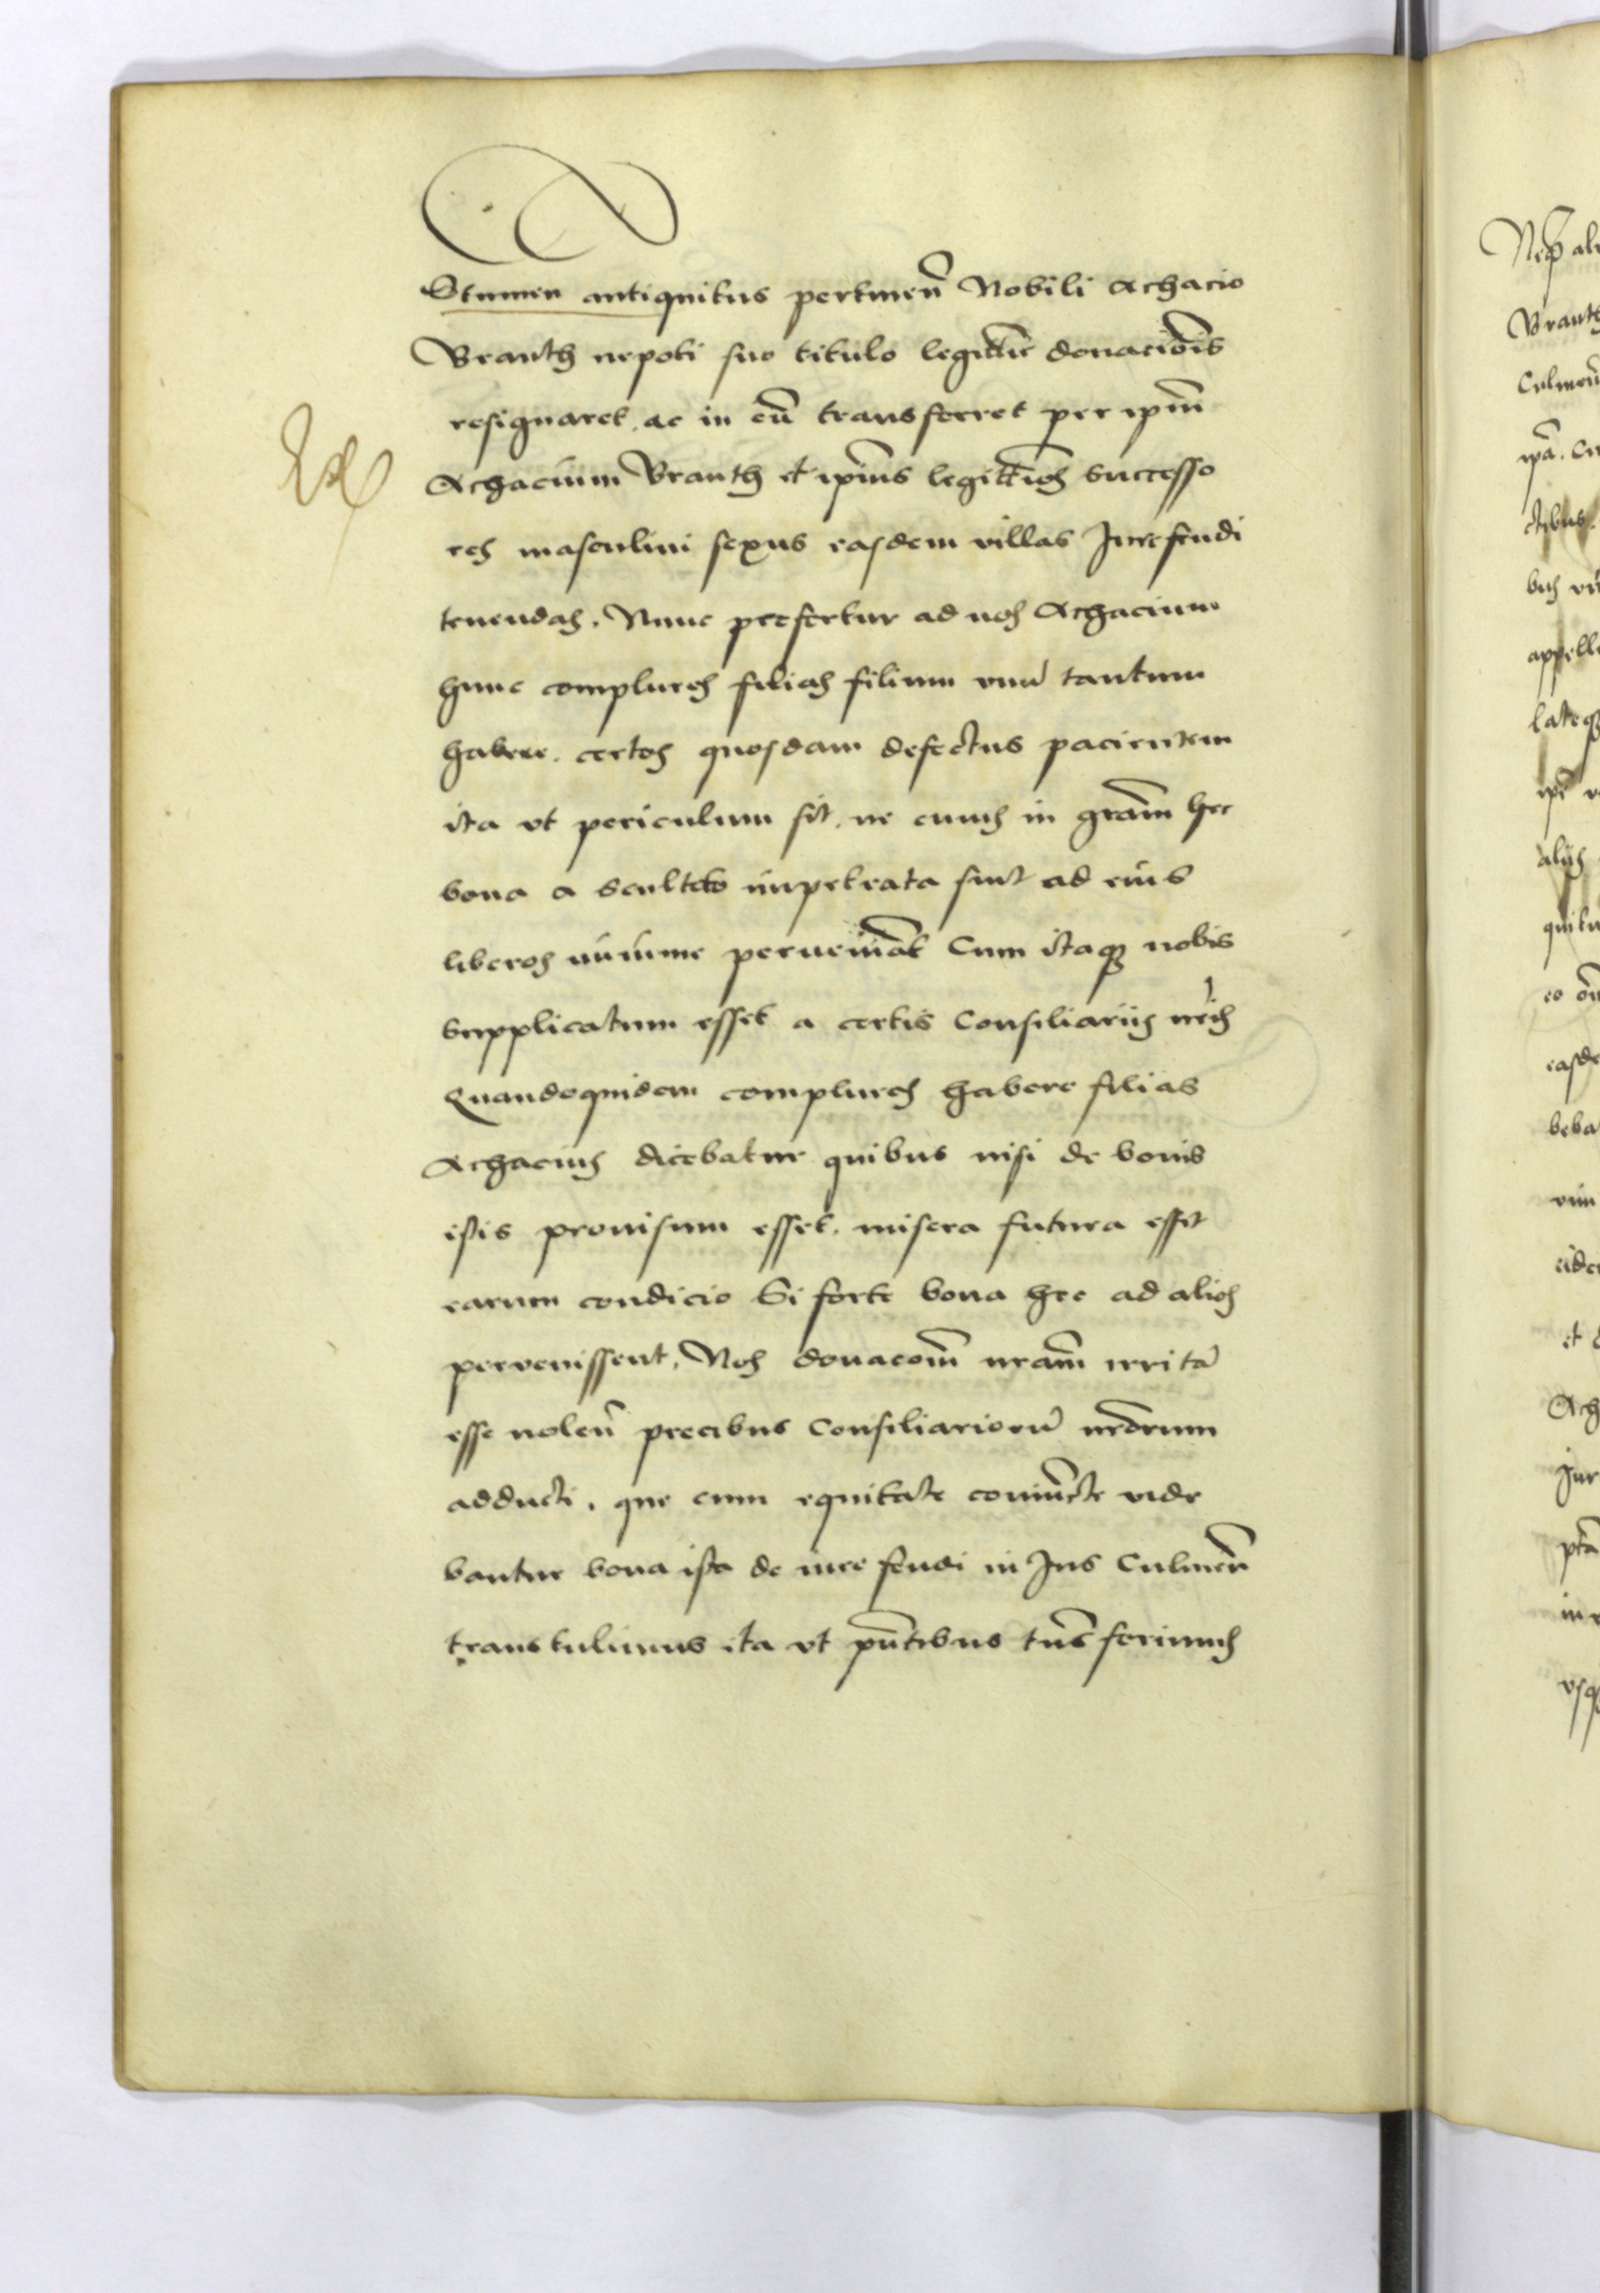 Stumen antiquitus pertinen̄ Nobili Achacio
Branth nepoti suo titulo legittīe donacio͞is
resignaret, ac in eū transferret per ip̄m
Achacium Branth et ip̄ius legittīos successo
res masculini sexus easdem villas Jure feudi
tenendas. Nunc prefertur ad nos Achacium
hunc complures filias filium vnū tantum
habere. certos quosdam defectus pacientem
ita vt periculum sit, ne cuius in gr̄am hec
bona a Sculteto impetrata sint ad eius
liberos minime perueniāt Cum itaq; nobis
supplicatum esset a certis Consiliariis nr̄is
Quandoquidem complures habere filias
Achacius dicebatur quibus nisi de bonis
istis prouisum esset, misera futura esset
earum condicio Si forte bona hec ad alios
pervenissent, Nos donaco͞m nr̄am irritā
esse nolen̄ precibus Consiliariorū nr̄orum
adducti, que cum equitate coniūcte vide
bantur bona ista de iure feudi in Jus Culmen̄
transtulimus ita vt pn̄tibus tn̄sferimus
Branth
Culmen̄
ip̄a. Cu
ctibus.
bus
appell
lateq;
ip̄e
aliis
quitu
easde
beba
eide
et
Ach
Jur
vsq;